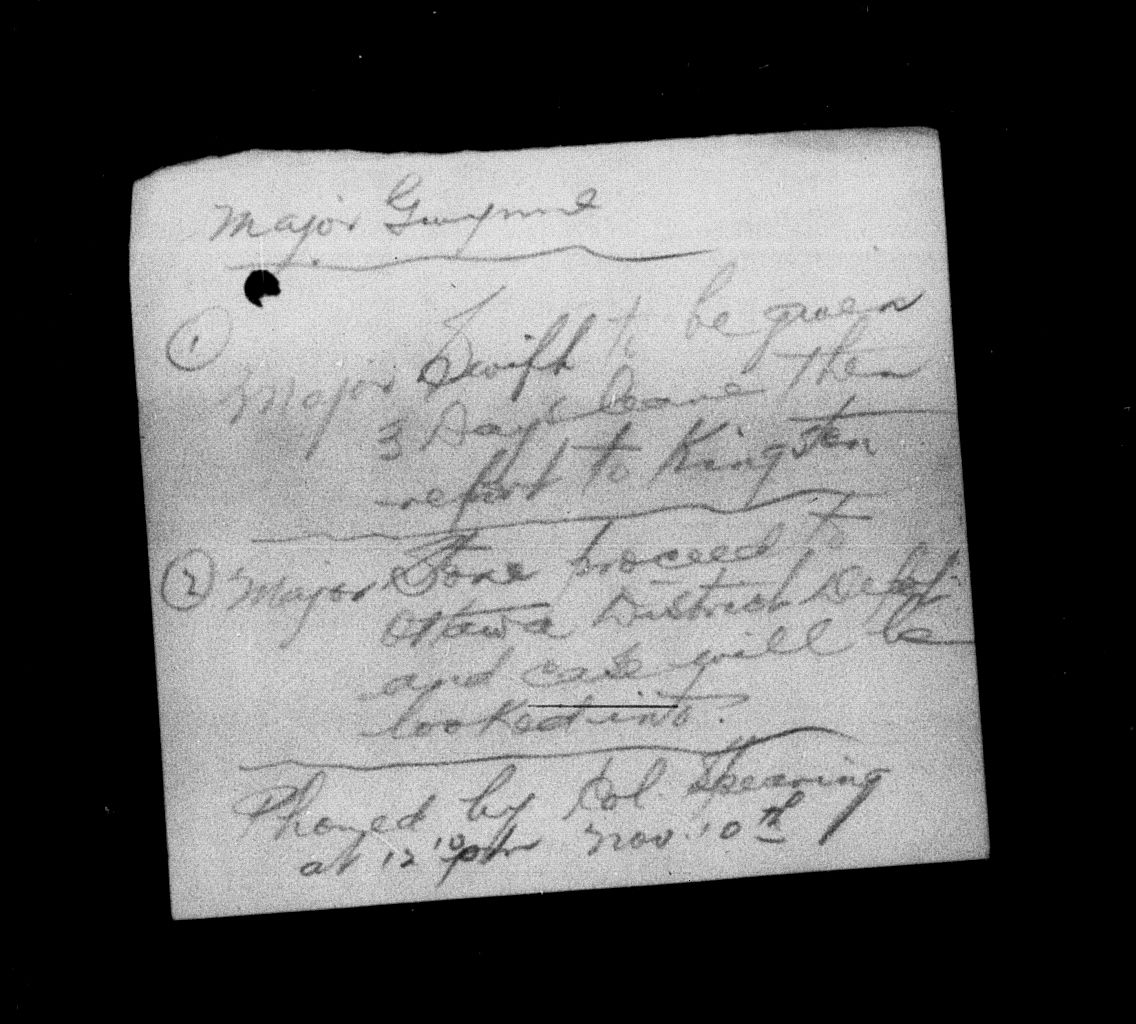 Major Gwynne
① Major Swift to be given
3 Days leave then
report to Kingston
② Major Stone proceed to
Ottawa District Depot
and case will be
looked into.
Phoned by Col. Spearing
at 12¹⁰ pm Nov. 10th